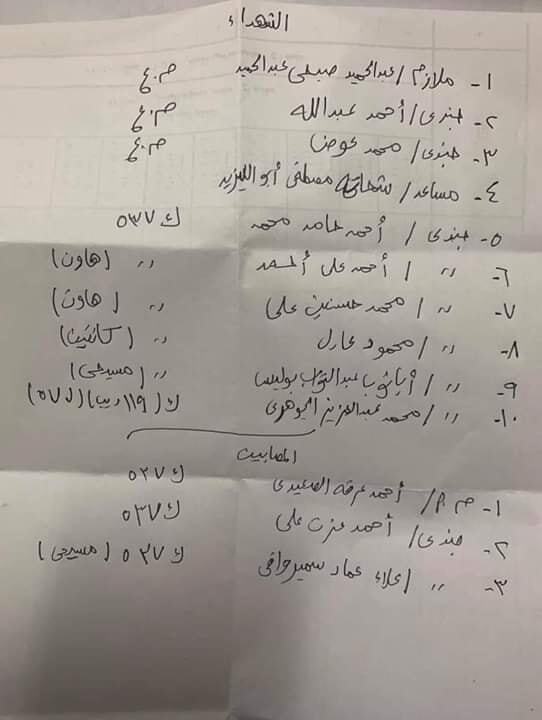 الشهداء
١- ملازم / عبدالحميد صبحى عبدالحميد م.ع
٢- جندى / أحمد عبدالله م.ع
٣- جندى / محمد عوض م.ع
٤- مساعد / شحاته مصطفى أبو اليزيد
٥- جندى / أحمد حامد محمد ك ٥٣٧
٦- ,, / أحمد على ,, (هاون)
٧- ,, / محمد حسنين على ,, (هاون)
٨- ,, / محمود عادل ,, (كانتين)
٩- ,, / عبدالتواب بوليس ,, (مسيحى)
١٠- ,, / محمد عبدالعزيز الجوهرى ك ١١٩
المصابين
١- أحمد عرفه الصعيدى ك ٥٣٧
٢- جندى / أحمد عزت على ك ٥٣٧
٣- ,, / علاء عماد سمير ك ٥٣٧ (مسيحى)